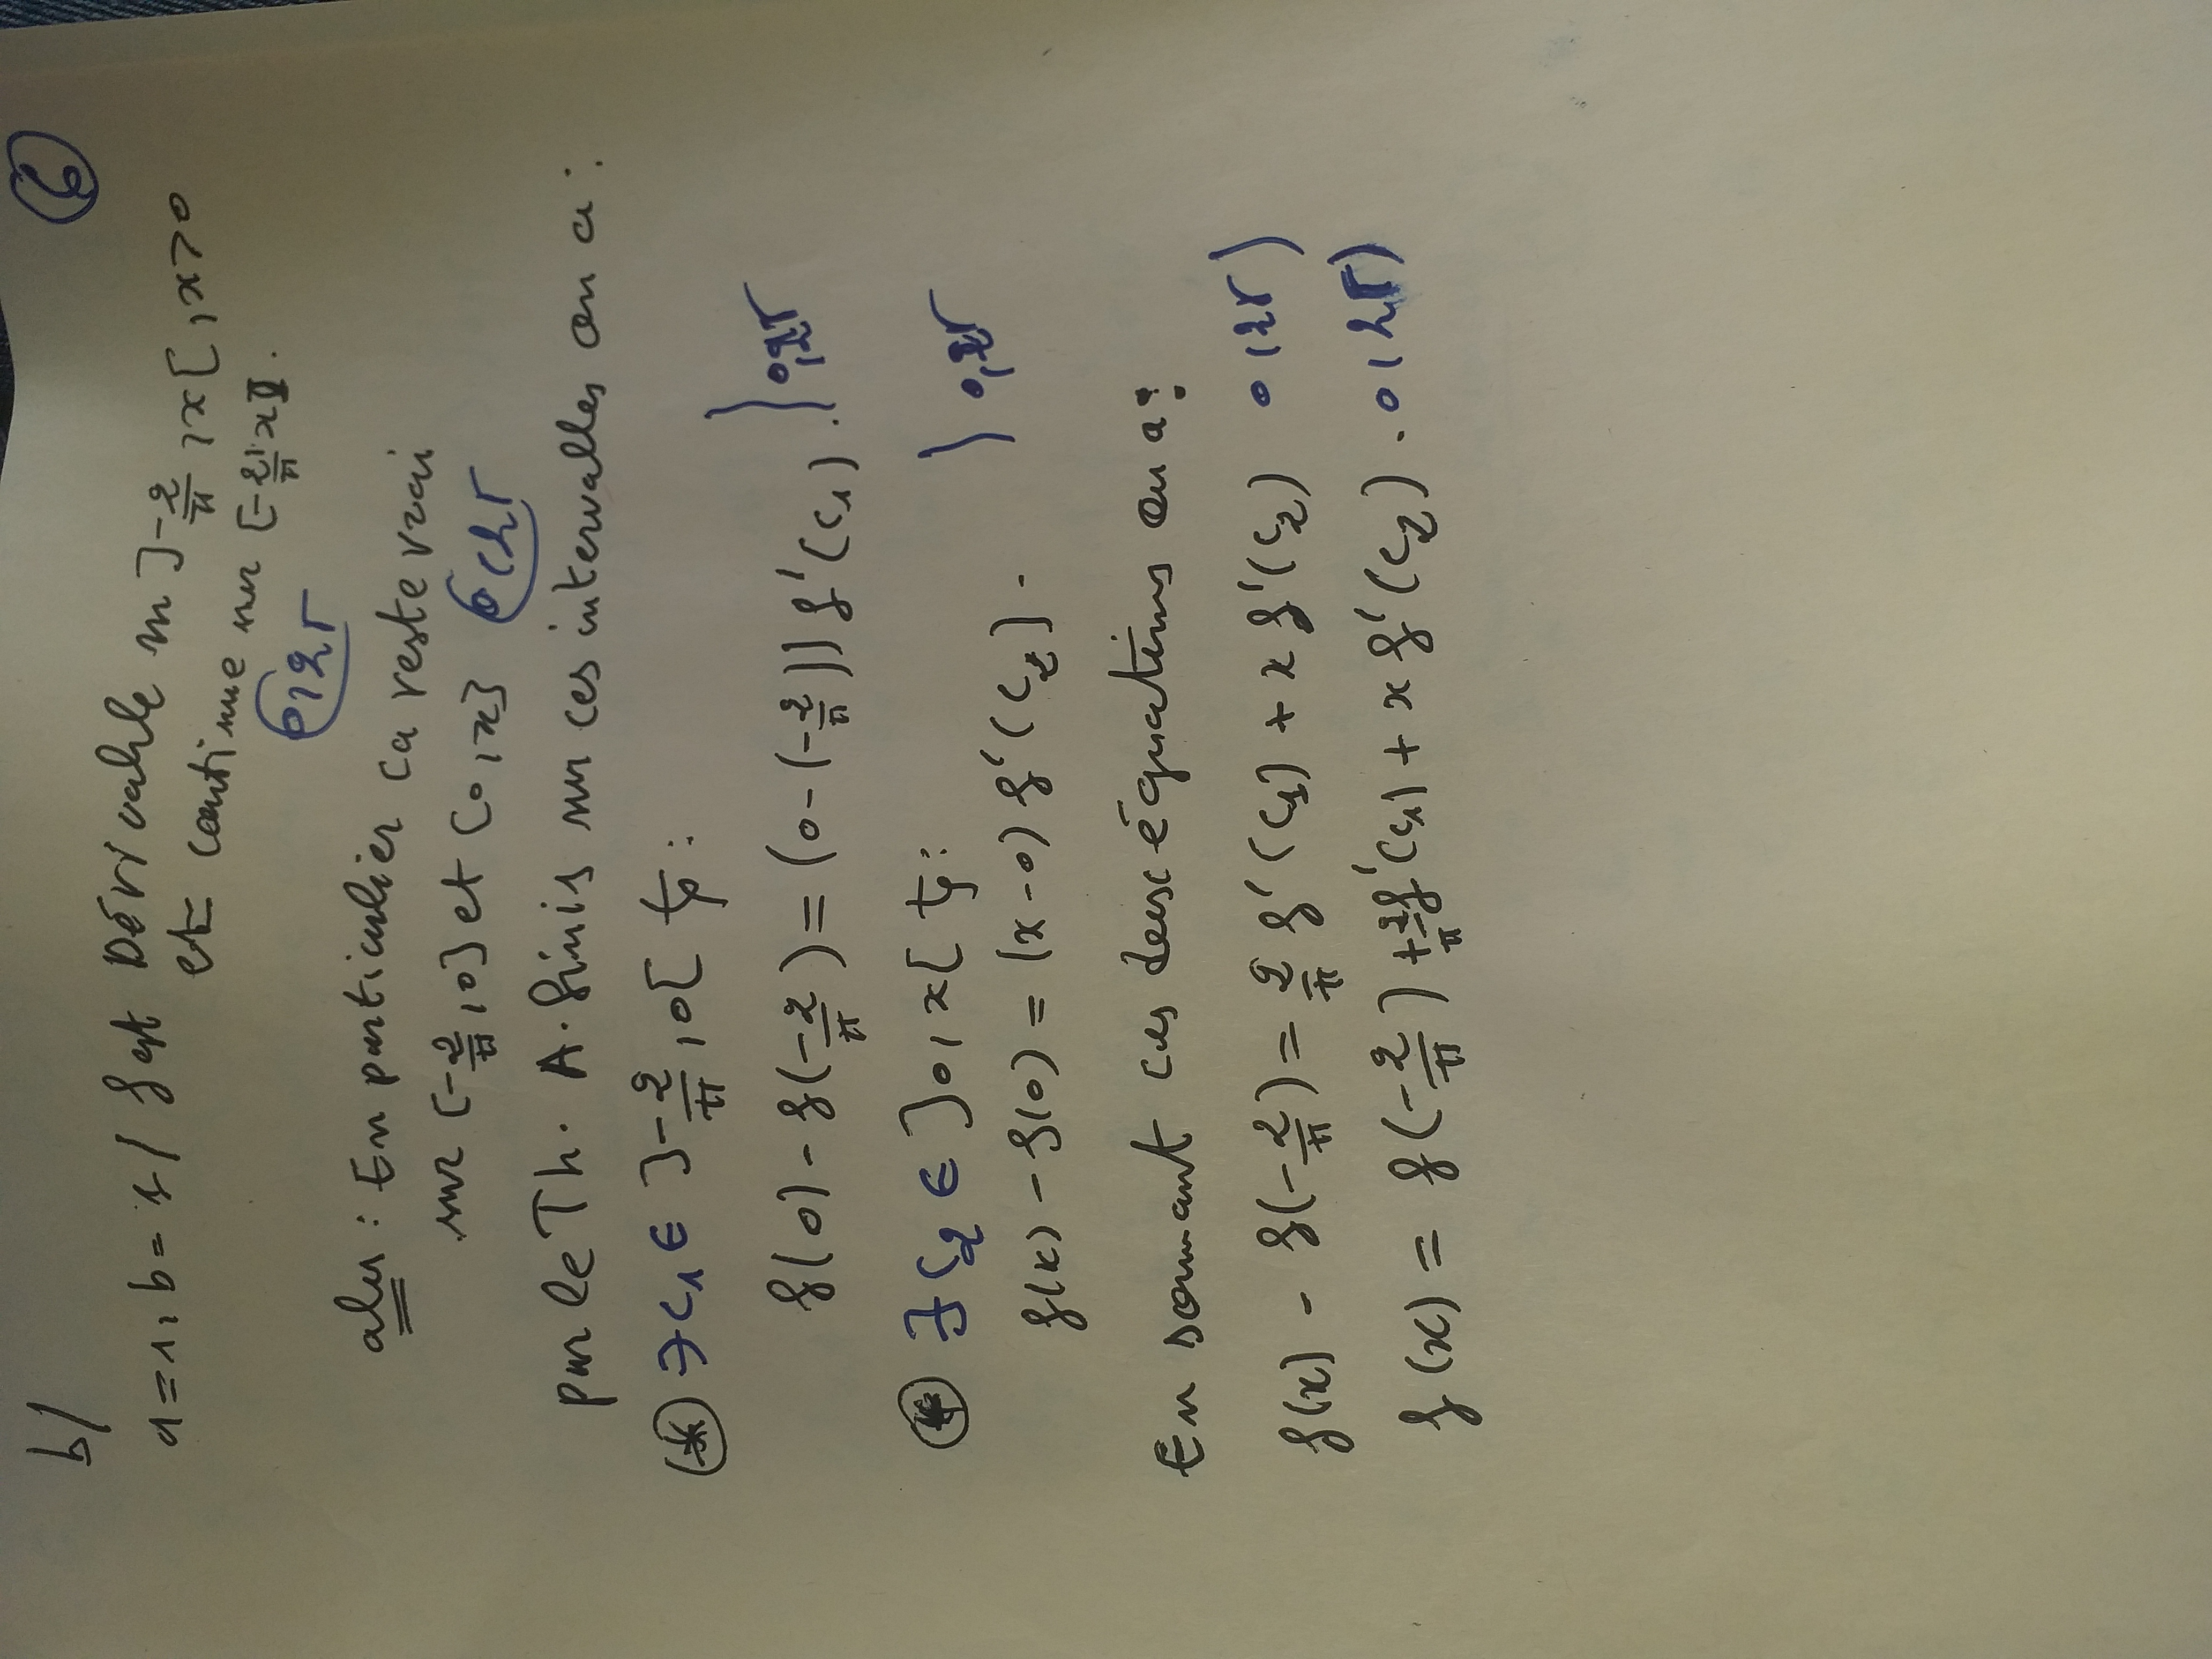 6
b/
a=1, b=1/ f est Dérivable sur ]-2/π, x[, x>0
et continue sur [-2/π, x].
0,25
alu : En particulier ca reste vrai
sur [-2/π, 0] et [0, x] 0,25
par le Th. A. finis sur ces intervalles on a :
(*) ∃ c₁ ∈ ]-2/π, 0[ tq :
f(0) - f(-2/π) = (0-(-2/π)) f'(c₁). } 0,25
(*) ∃ c₂ ∈ ]0, x[ tq : } 0,25
f(x) - f(0) = (x-0) f'(c₂).
En sommant ces deux équations on a :
f(x) - f(-2/π) = 2/π f'(c₁) + x f'(c₂) 0,25)
f(x) = f(-2/π) + 2/π f'(c₁) + x f'(c₂). 0,25)